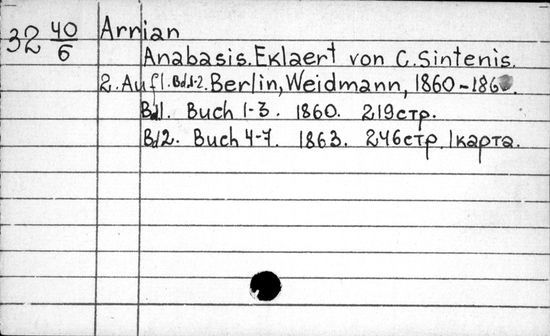 32 40/6 Arrian
Anabasis. Eklaert von C. Sintenis.
2. Aufl. Bd.1-2. Berlin, Weidmann, 1860-186
Bd1. Buch 1-3. 1860. 219стр.
Bd2. Buch 4-7. 1863. 246стр. 1карта.